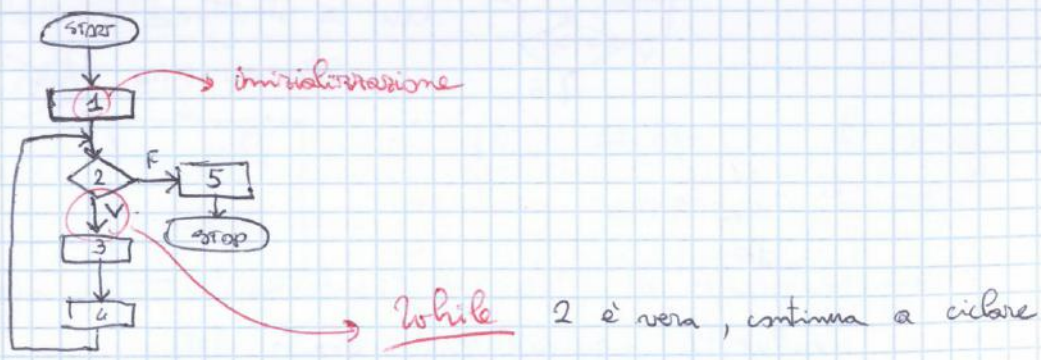 START
1
inizializzazione
2
F
5
V
STOP
3
4
While 2 è vera, continua a ciclare